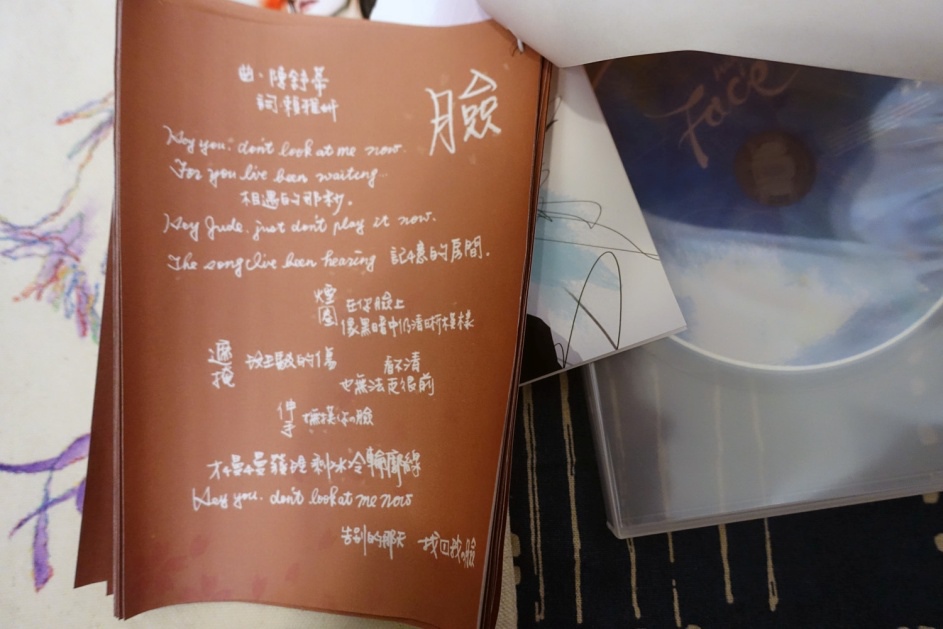 臉
曲、陳舒華
詞 賴雅妍
Hey you, don't look at me now.
For you I've been waiting
相遇的那秒。
Hey Jude, just don't play it now.
The song I've been hearing 記憶的房間.
煙圈 在你臉上
像黑暗中仍清晰模樣
遮掩 沒正嚴的傷
看不清
也無法更很前
伸手 撫摸你的臉
才慢慢發現 剩冰冷輪廓線
Hey you, don't look at me now
告別的那天 找回我的臉
Face